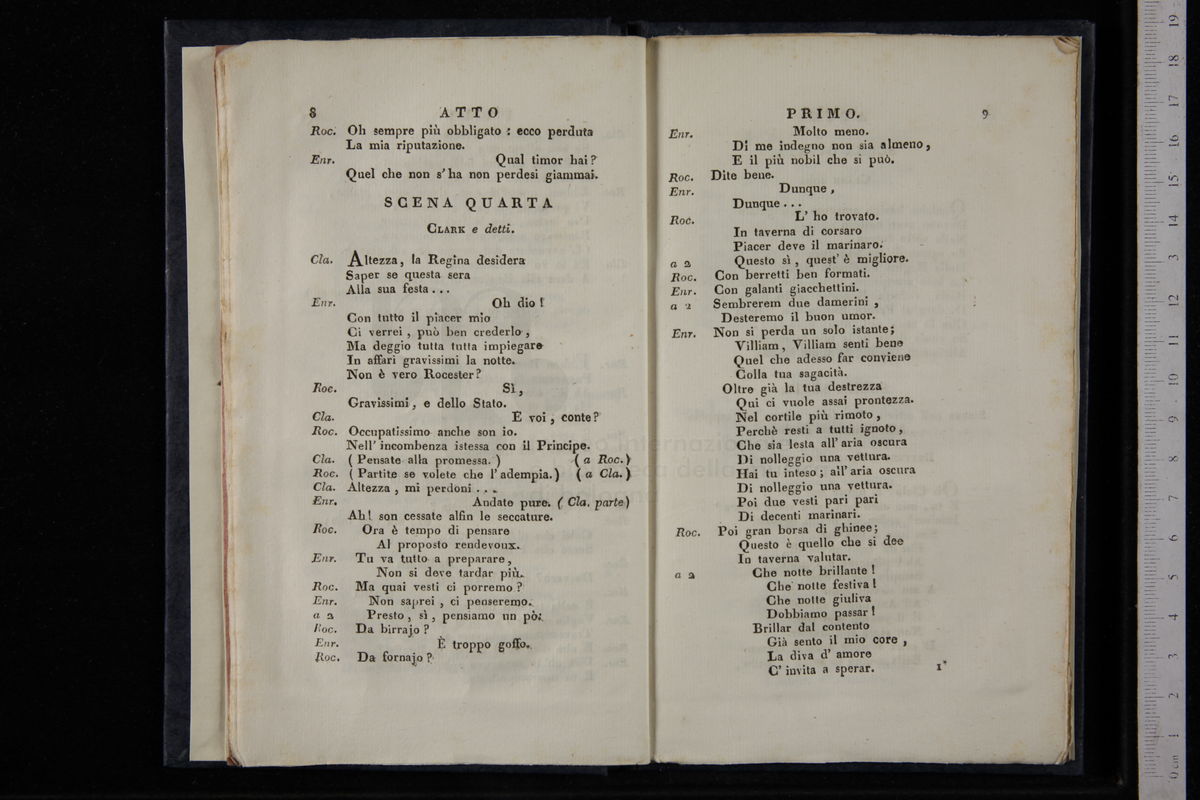 8 ATTO
Roc. Oh sempre più obbligato : ecco perduta
La mia riputazione.
Enr. Qual timor hai ?
Quel che non s'ha non perdesi giammai.
SCENA QUARTA
CLARK e detti.
Cla. Altezza, la Regina desidera
Saper se questa sera
Alla sua festa . . .
Enr. Oh dio !
Con tutto il piacer mio
Ci verrei , può ben crederlo ,
Ma deggio tutta tutta impiegare
In affari gravissimi la notte.
Non è vero Rocester ?
Roc. Sì ,
Gravissimi , e dello Stato.
Cla. E voi , conte ?
Roc. Occupatissimo anche son io.
Nell' incombenza istessa con il Principe.
Cla. ( Pensate alla promessa. ) ( a Roc. )
Roc. ( Partite se volete che l' adempia. ) ( a Cla. )
Cla. Altezza , mi perdoni . . .
Enr. Andate pure. ( Cla. parte )
Ah ! son cessate alfin le seccature.
Roc. Ora è tempo di pensare
Al proposto rendevoux.
Enr. Tu va tutto a preparare ,
Non si deve tardar più.
Roc. Ma quai vesti ci porremo ?
Enr. Non saprei , ci penseremo.
a 2 Presto , sì , pensiamo un pò.
Roc. Da birrajo ?
Enr. È troppo goffo.
Roc. Da fornajo ?
PRIMO. 9
Enr. Molto meno.
Di me indegno non sia almeno ,
E il più nobil che si può.
Roc. Dite bene.
Enr. Dunque ,
Dunque . . .
Roc. L' ho trovato.
In taverna di corsaro
Piacer deve il marinaro.
a 2 Questo sì , quest' è migliore.
Roc. Con berretti ben formati.
Enr. Con galanti giacchettini.
a 2 Sembrerem due damerini ,
Desteremo il buon umor.
Enr. Non si perda un solo istante ;
Villiam , Villiam senti bene
Quel che adesso far conviene
Colla tua sagacità.
Oltre già la tua destrezza
Qui ci vuole assai prontezza.
Nel cortile più rimoto ,
Perchè resti a tutti ignoto ,
Che sia lesta all' aria oscura
Di nolleggio una vettura.
Hai tu inteso ; all' aria oscura
Di nolleggio una vettura.
Poi due vesti pari pari
Di decenti marinari.
Roc. Poi gran borsa di ghinee ;
Questo è quello che si dee
In taverna valutar.
a 2 Che notte brillante !
Che notte festiva !
Che notte giuliva
Dobbiamo passar !
Brillar dal contento
Già sento il mio core ,
La diva d' amore
C' invita a sperar. 1*
0 cm 1 2 3 4 5 6 7 8 9 10 11 12 13 14 15 16 17 18 19